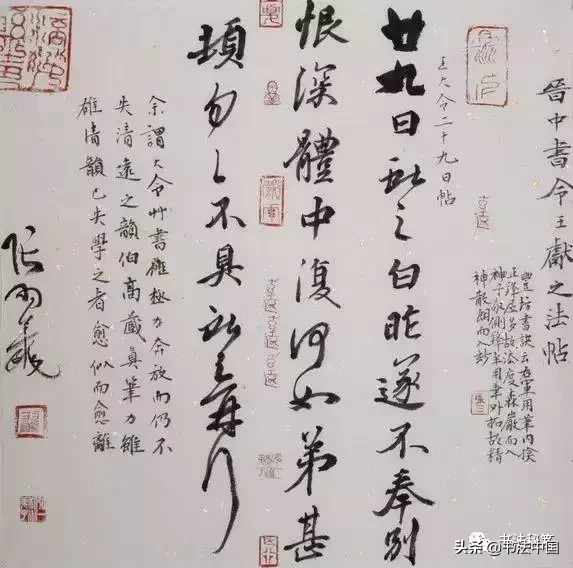 晉中書令王獻之法帖
豐坊書訣云右軍用筆內擫
正鋒居多故法度森嚴而入
神子敬側鋒半用筆外拓故精
神散朗而入妙
王大令二十九日帖
廿九日獻之白昨遂不奉別
恨深體中復何如弟甚
頓勿〻不具獻之再拜
余謂大令艸書雖極力奔放而仍不
失清遠之韻伯高藏真筆力雖
雄清韻已失學之者愈似而愈離
书法秘笈
头条 @书法中国